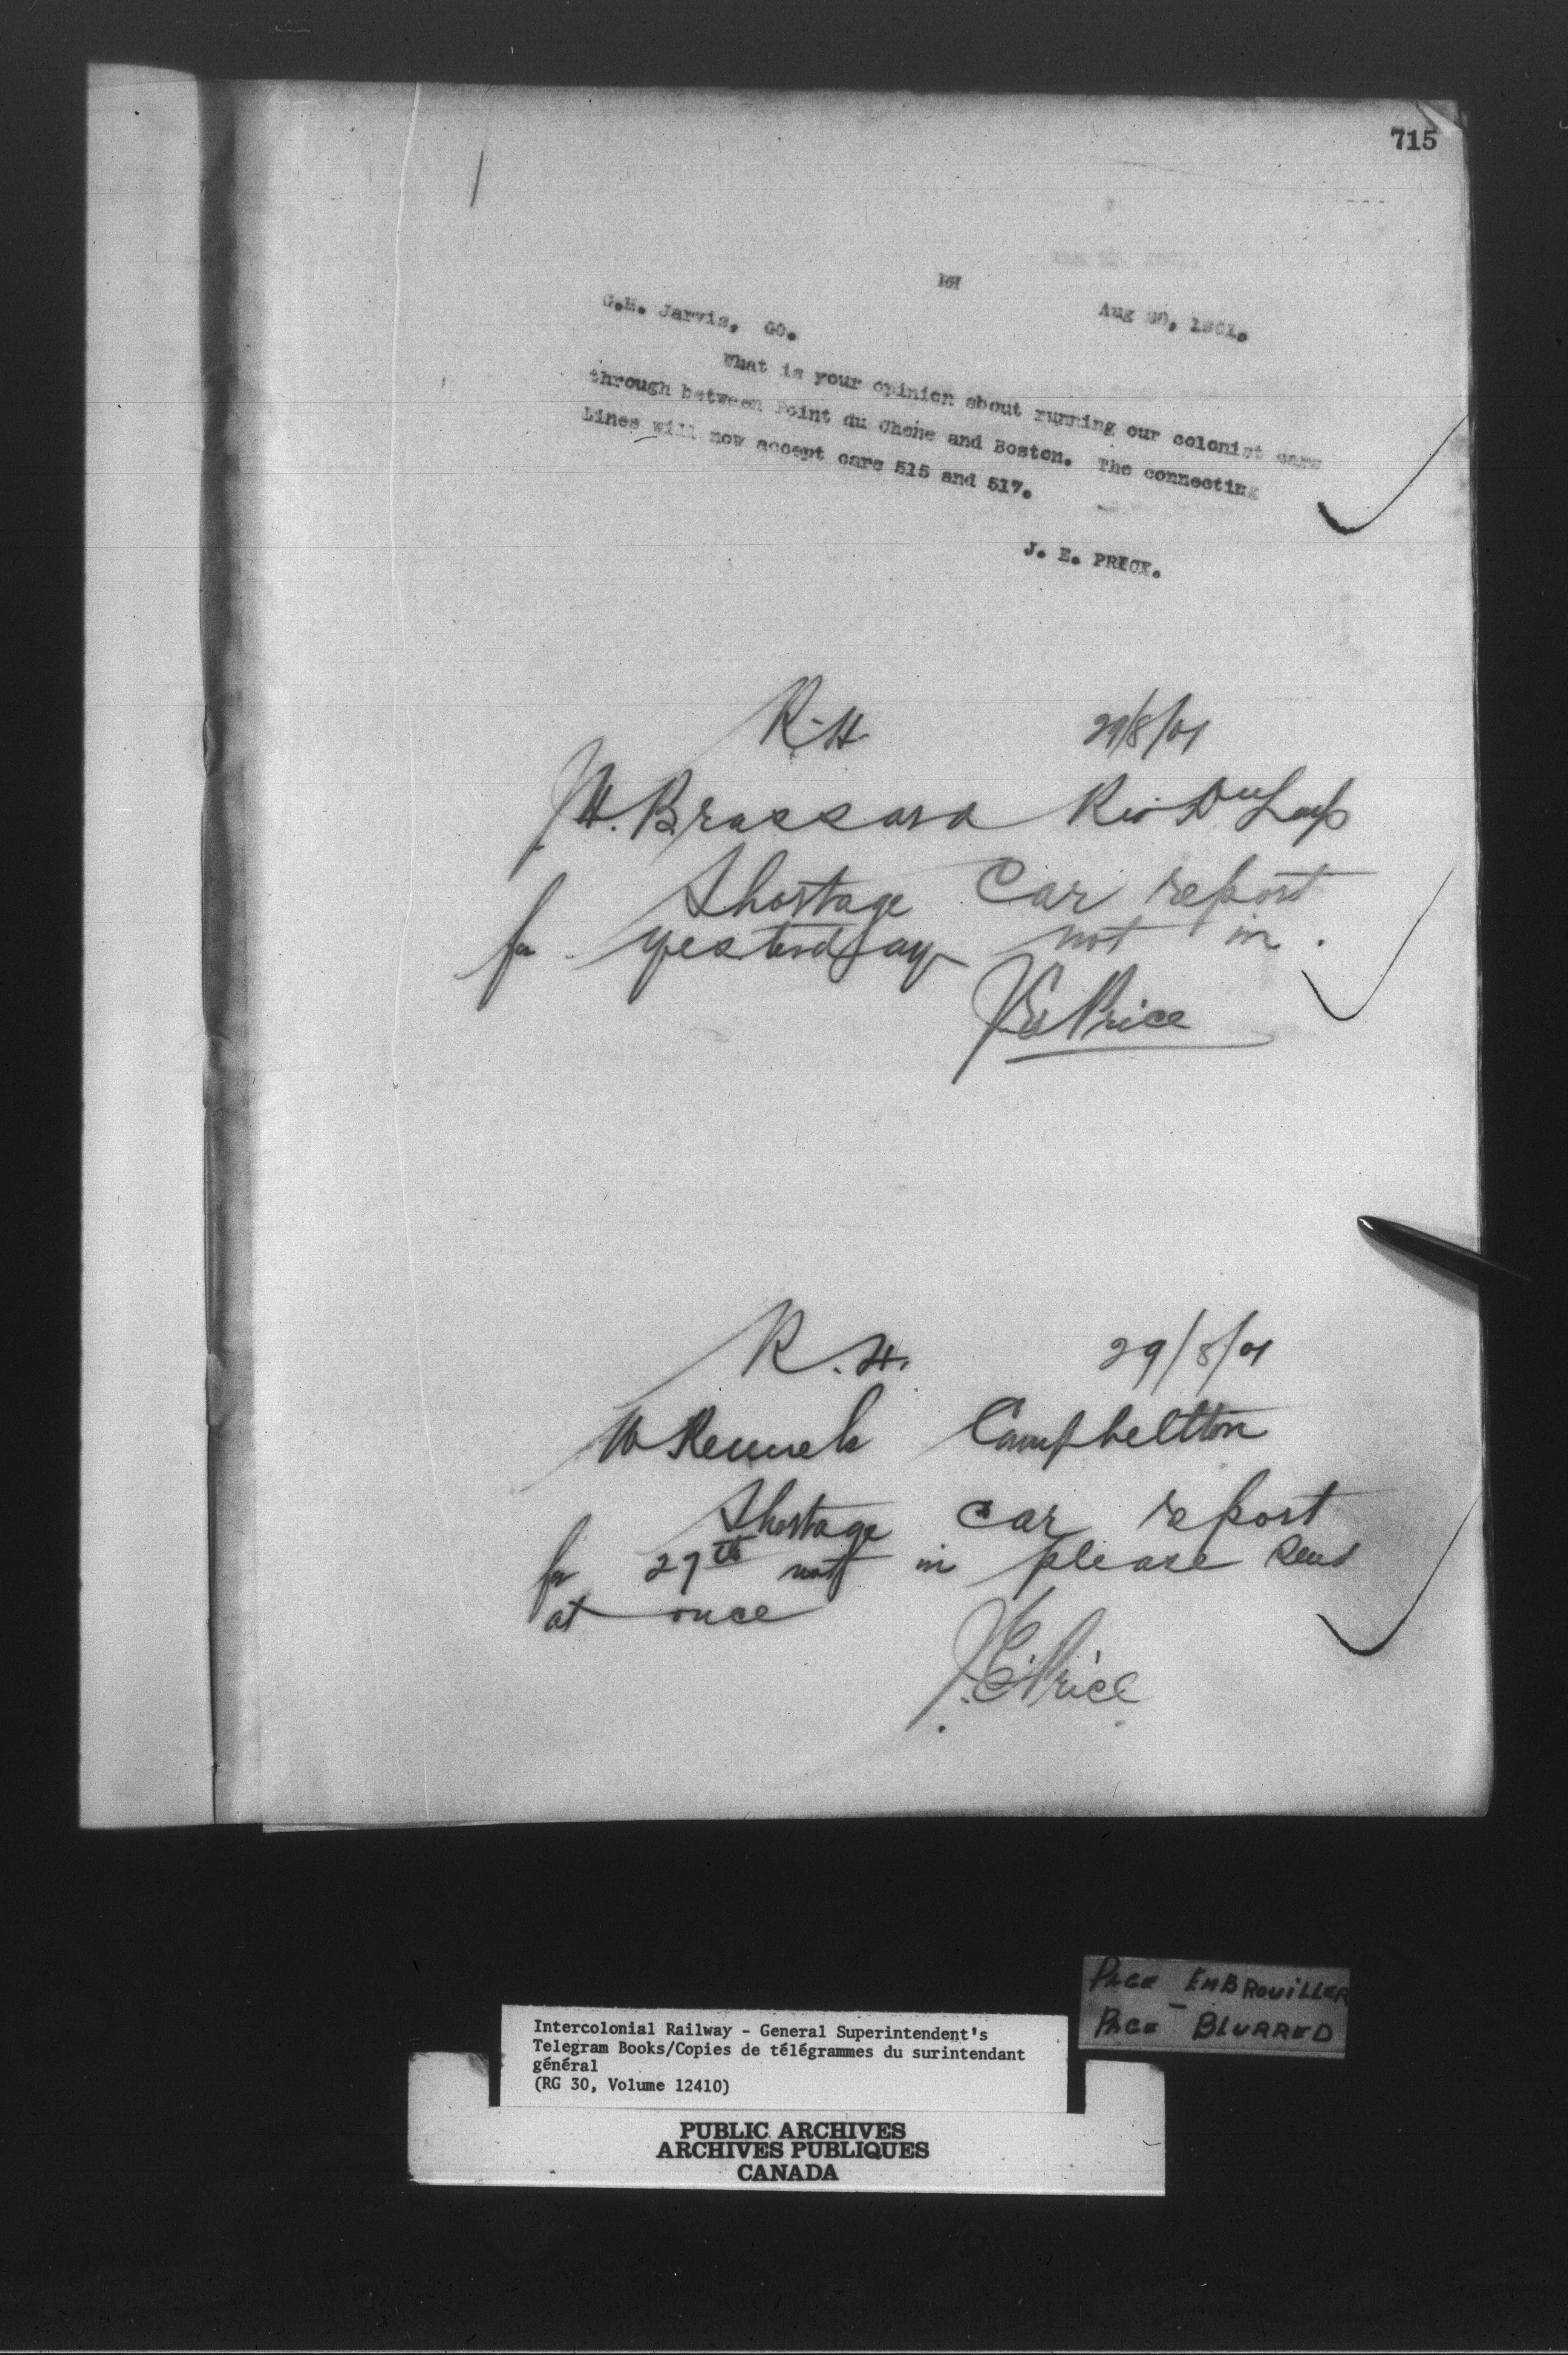 715
G.M. Jarvis, GO.
Aug 29, 1901.
What is your opinion about running our colonist cars
through between Point du Chene and Boston. The connecting
Lines will now accept cars 515 and 517.
J. E. PRICE.
R.H. 29/8/01
J.H. Brassard Riv Du Loup
Shortage Car report
for yesterday not in.
J.E. Price
R.H. 29/8/01
W Rennels Campbellton
Shortage car report
for 27th not in please send
at once
J.E. Price
PAGE EMBROUILLER
PAGE - BLURRED
Intercolonial Railway - General Superintendent's
Telegram Books/Copies de télégrammes du surintendant
général
(RG 30, Volume 12410)
PUBLIC ARCHIVES
ARCHIVES PUBLIQUES
CANADA